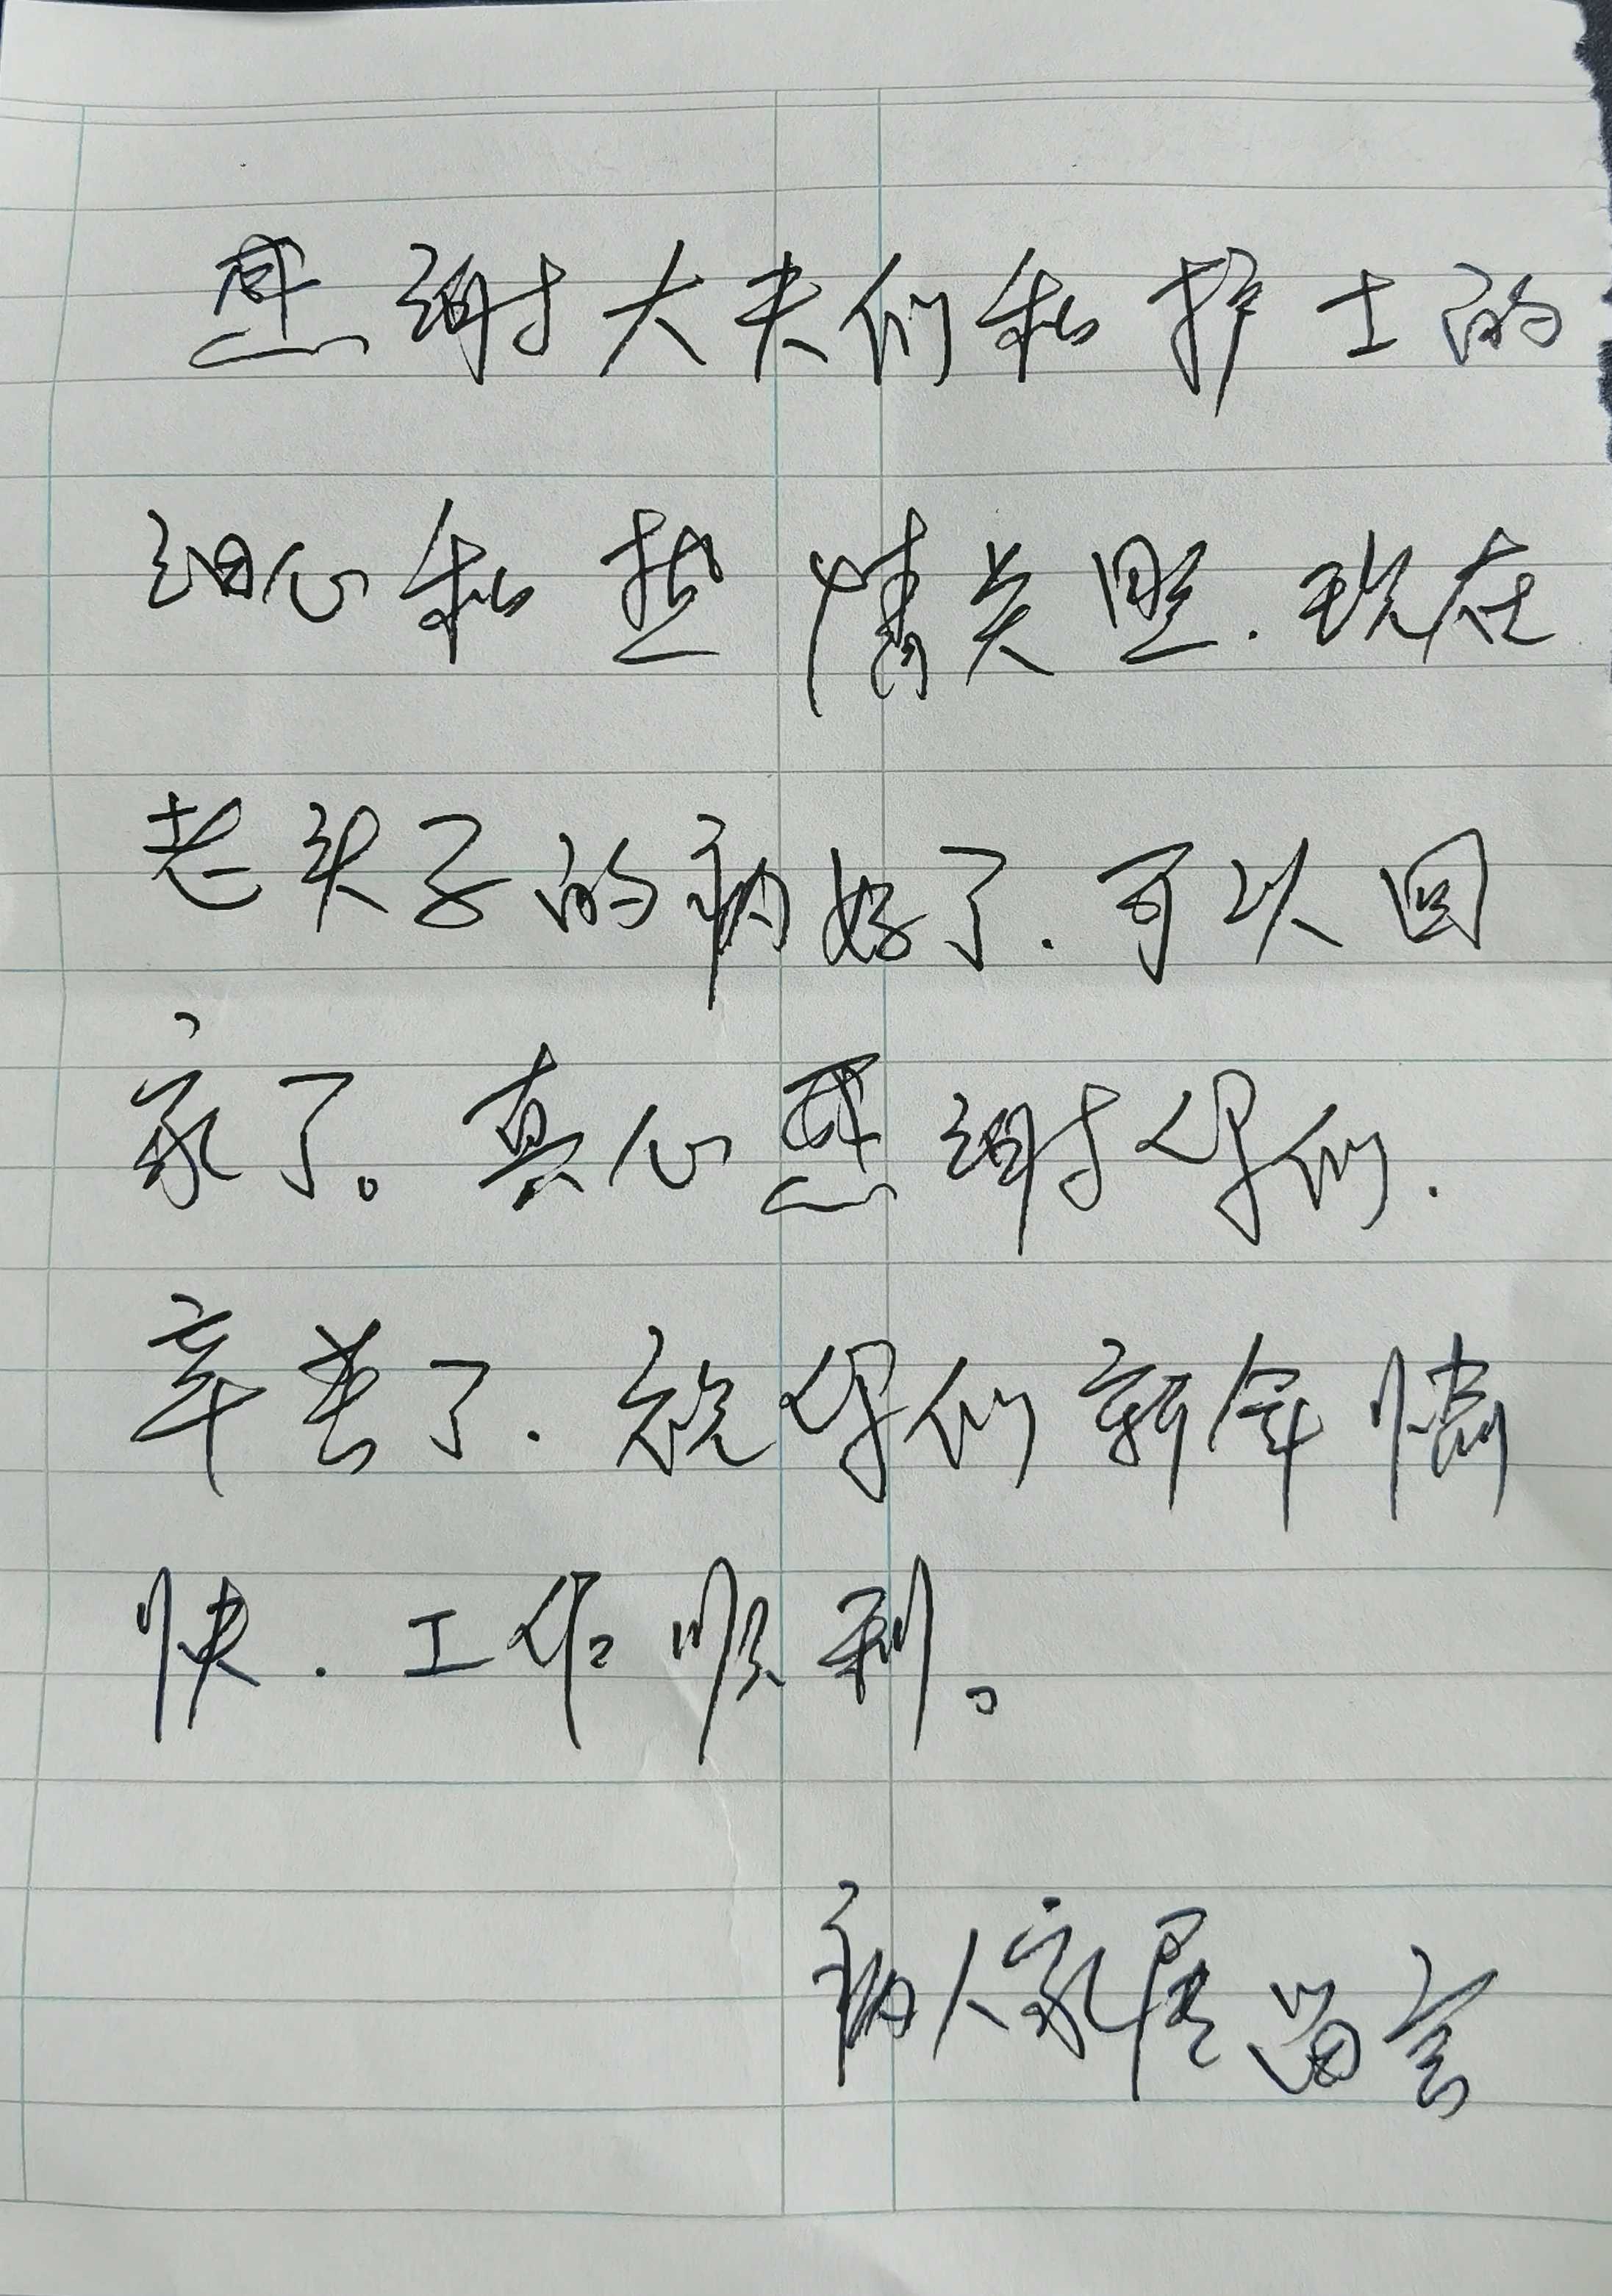 感谢大夫们和护士的
细心和热情关照.现在
老头子的病好了.可以回
家了。真心感谢你们.
辛苦了.祝你们新年愉
快.工作顺利。
病人家属留言